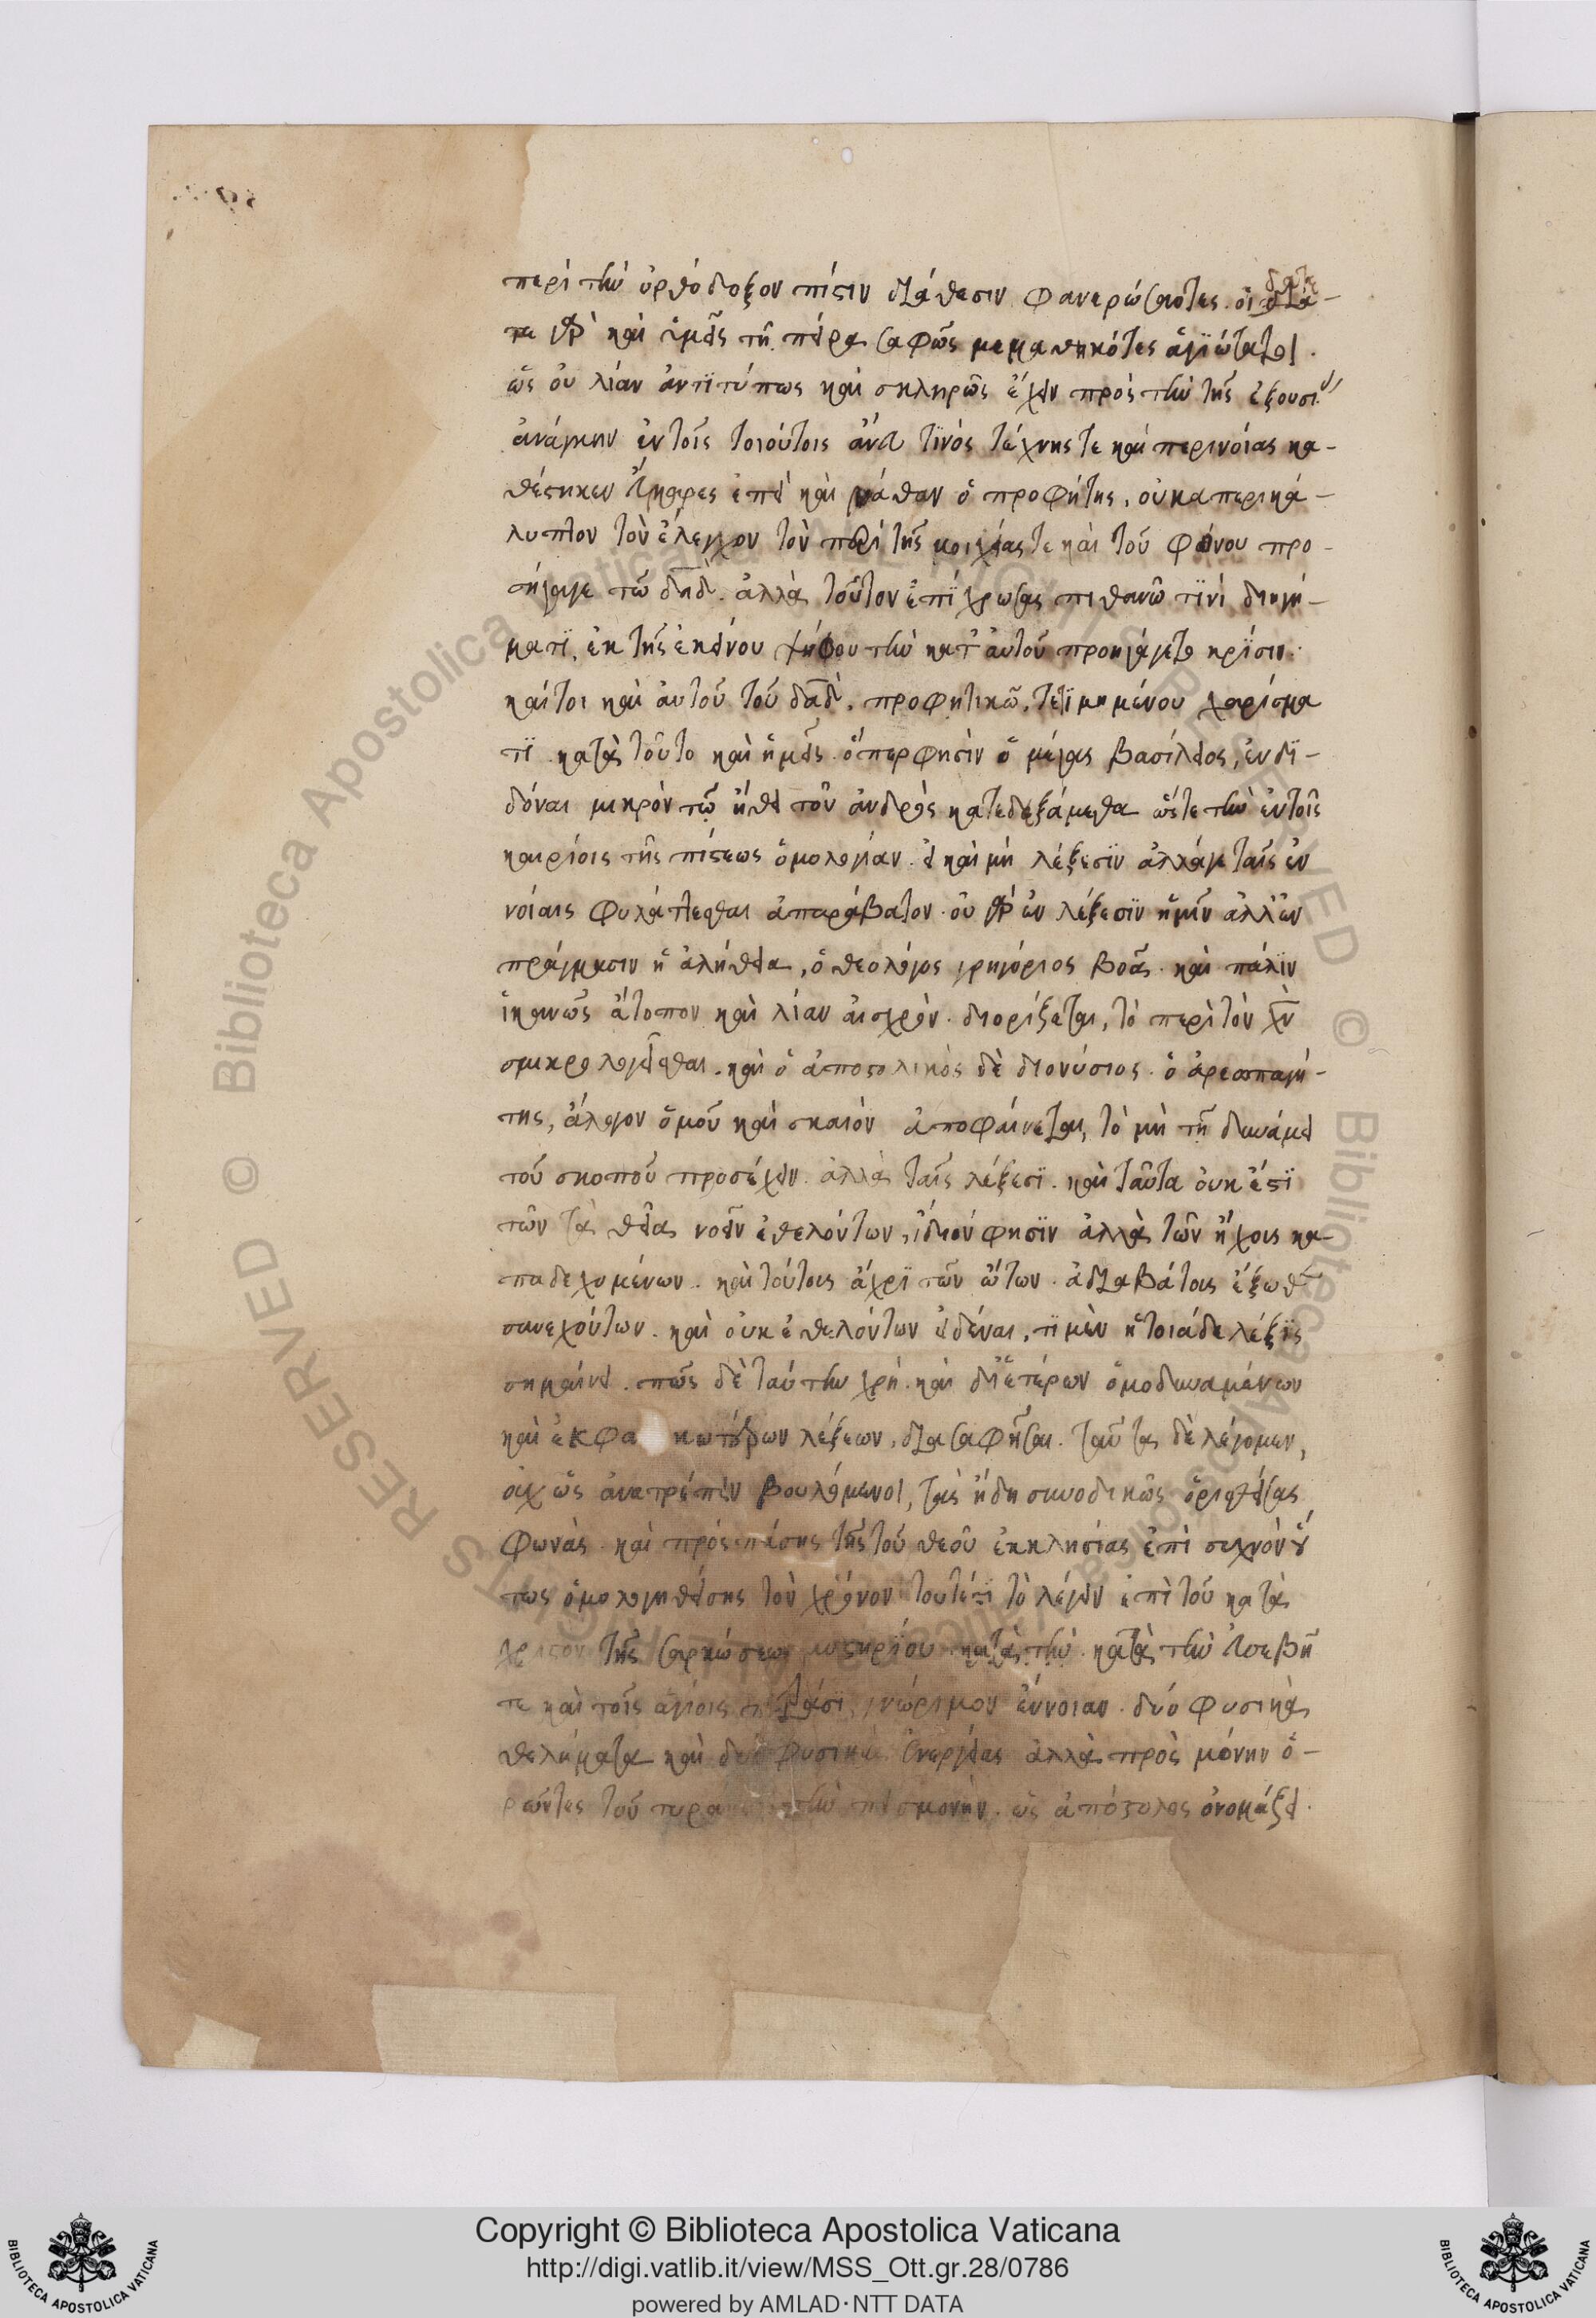 περὶ τὴν ὀρθόδοξον πίστιν διάθεσιν φανερώσαντες. οἴδατε
γὰρ καὶ ὑμεῖς τῇ πείρᾳ σαφῶς μεμαθηκότες ἁγιώτατοι.
ὡς οὐ λίαν ἀντιτύπως καὶ σκληρῶς ἔχειν πρὸς τὴν τῆς ἐξουσί
ἀνάγκην ἐν τοῖς τοιούτοις ἄνευ τινὸς τέχνης τε καὶ περινοίας κα-
θέστηκεν ἐπεὶ καὶ νάθαν ὁ προφήτης, οὐκ ἀπερικά-
λυπτον τὸν ἔλεγχον τὸν περὶ τῆς μοιχείας τε καὶ τοῦ φόνου προ-
σήγαγε τῷ δαδ. ἀλλὰ τοῦτον ἐπιχρώσας πιθανῷ τινὶ διηγή-
ματι, ἐκ τῆς ἐκείνου ψήφου τὴν κατ αὐτοῦ προηγάγετο κρίσιν.
καίτοι καὶ αὐτοῦ τοῦ δαδ. προφητικῶ, τετιμημένου χαρίσμα
τι. κατὰ τοῦτο καὶ ἡμεῖς. ὅπερ φησὶν ὁ μέγας βασίλειος, ἐνδι-
δόναι μικρὸν τῷ ἤθει τοῦ ἀνδρὸς κατεδεξάμεθα ὥστε τὴν ἐν τοῖς
καιρίοις τῆς πίστεως ὁμολογίαν. εἰ καὶ μὴ λέξεσιν ἀλλάγε ταῖς ἐν
νοίαις φυλάττεσθαι ἀπαράβατον. οὐ γὰρ ἐν λέξεσιν ἡμῖν ἀλλ' ἐν
πράγμασιν ἡ ἀλήθεια, ὁ θεολόγος γρηγόριος βοᾷ. καὶ πάλιν
ἱκανῶς ἄτοπον καὶ λίαν αἰσχρὸν. διορίζεται, τὸ περὶ τὸν χν
σμικρολογεῖσθαι. καὶ ὁ ἀποστολικὸς δὲ διονύσιος. ὁ ἀρεοπαγί-
της, ἄλογον ὁμοῦ καὶ σκαιὸν ἀποφαίνεται, τὸ μὴ τῇ δυνάμει
τοῦ σκοποῦ προσέχειν. ἀλλὰ ταῖς λέξεσι. καὶ ταῦτα οὐκ ἔστι
τῶν τὰ θεῖα νοεῖν ἐθελόντων, ἴδιον φησὶν ἀλλὰ τῶν ἤχοις κα-
παδεχομένων. καὶ τούτοις ἄχρι τῶν ὤτων. ἀδιαβάτοις ἔξωθ
συνεχόντων. καὶ οὐκ ἐθελόντων εἰδέναι, τί μὲν ἡ τοιάδε λέξις
σημαίνει. πῶς δὲ ταύτην χρὴ. καὶ δι' ἑτέρων ὁμοδυναμένων
καὶ ἐκφα κωτέρων λέξεων, διασαφῆσαι. ταῦτα δὲ λέγομεν,
οὐχ ὡς ἀνατρέπειν βουλόμενοι, τὰς ἤδη συνοδικῶς ὁρισθείσας
φωνὰς. καὶ πρὸς πάσης τῆς τοῦ θεοῦ ἐκκλησίας ἐπὶ συχνὸν οὕ
τως ὁμολογηθείσης τὸν χρόνον τουτέστι τὸ λέγειν ἐπὶ τοῦ κατὰ
χριστον τῆς σαρκώσεως μυστηρίου. κατὰ τὴν. κατὰ τὴν εὐσεβῆ
τε καὶ τοῖς ἁγίοις πατράσι, γνώριμον ἔννοιαν. δύο φυσικὰ
θελήματα καὶ δύο φυσικὰς ἐνεργείας ἀλλὰ πρὸς μόνην ὁ-
ρῶντες τοῦ τὴν πεισμονὴν. ὡς ἀπόστολος ὀνομάζει.
Copyright © Biblioteca Apostolica Vaticana
http://digi.vatlib.it/view/MSS_Ott.gr.28/0786
powered by AMLAD·NTT DATA